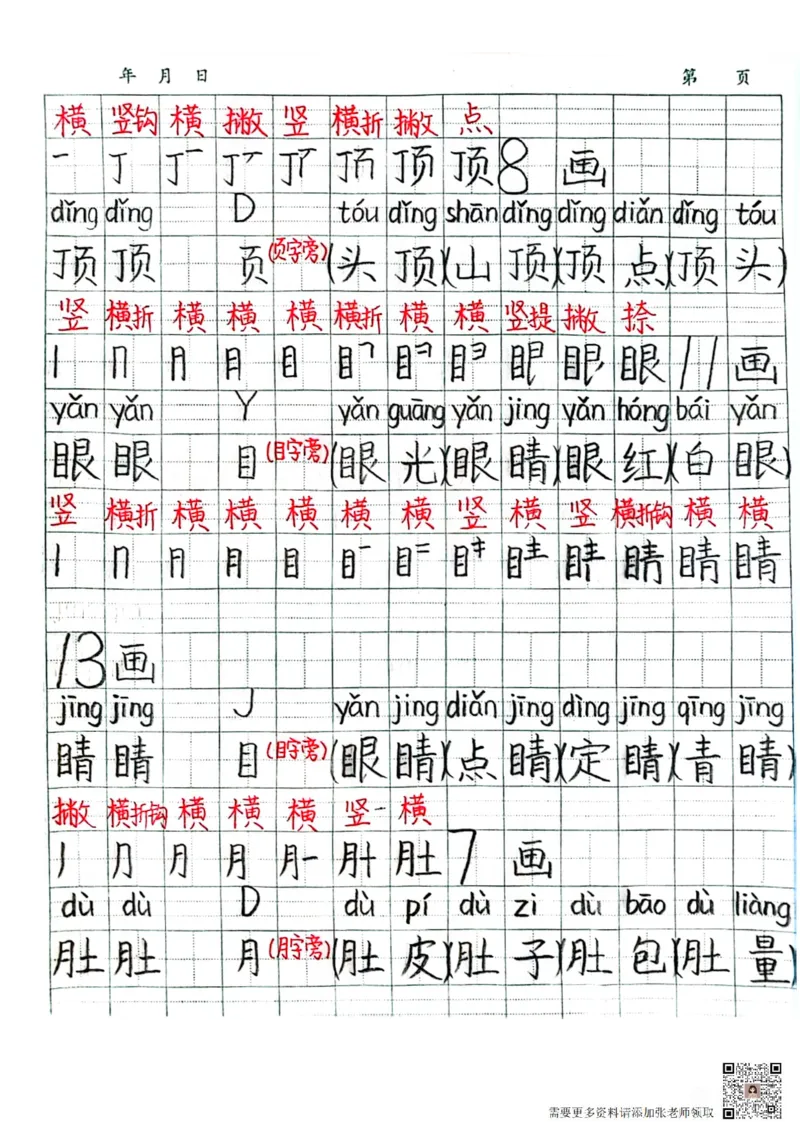 年 月 日 第 页
横 竖钩 横 撇 竖 横折 撇 点
8 画
dǐng dǐng D tóu dǐng shān dǐng dǐng diǎn dǐng tóu
顶 顶 页(页字旁)(头 顶)(山 顶)(顶 点)(顶 头)
竖 横折 横 横 横 横折 横 横 竖提 撇 捺
11 画
yǎn yǎn Y yǎn guāng yǎn jing yǎn hóng bái yǎn
眼 眼 目(目字旁)(眼 光)(眼 睛)(眼 红)(白 眼)
竖 横折 横 横 横 横 横 竖 横 竖 横折钩 横 横
13 画
jīng jīng J yǎn jing diǎn jīng dìng jīng qīng jīng
睛 睛 目(目字旁)(眼 睛)(点 睛)(定 睛)(青 睛)
撇 横折钩 横 横 横 竖 横
7 画
dù dù D dù pí dù zi dù bāo dù liàng
肚 肚 月(月字旁)(肚 皮)(肚 子)(肚 包)(肚 量)
需要更多资料请添加张老师领取